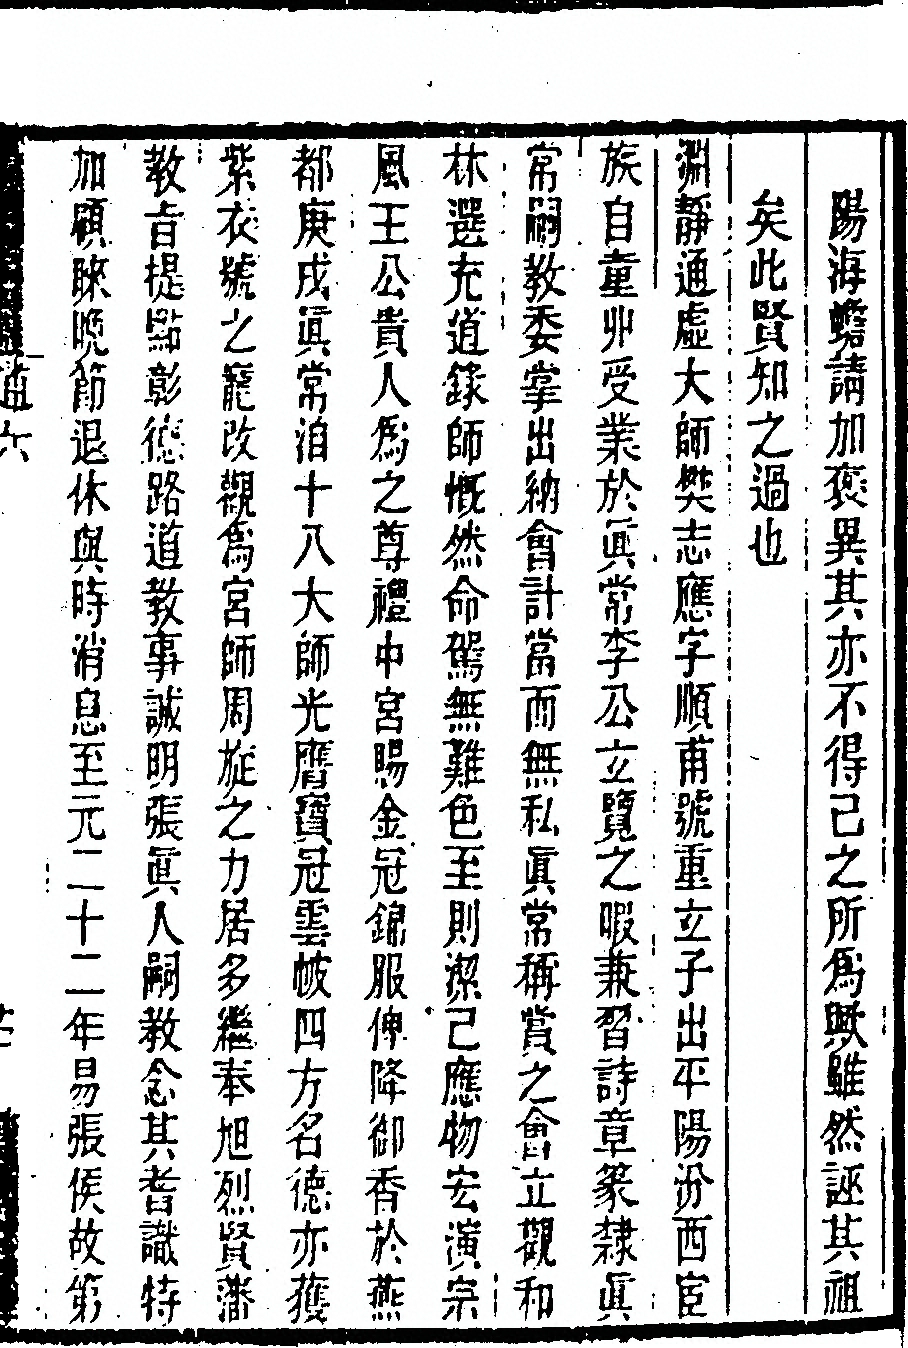 陽海蟾請加褒異其亦不得已之所爲歟雖然誣其祖
矣此賢知之過也
淵靜通虛大師樊志應字順甫號重立子出平陽汾西宦
族自童丱受業於眞常李公立覽之暇兼習詩章篆隸眞
常嗣教委掌出納會計當而無私眞常稱賞之會立觀和
林選充道錄師慨然命駕無難色至則潔己應物宏演宗
風王公貴人爲之尊禮中宮賜金冠錦服俾降御香於燕
都庚戌眞常洎十八大師光膺寶冠雲帔四方名德亦獲
紫衣號之寵改觀爲宮師周旋之力居多繼奉旭烈賢藩
教旨提點彰德路道教事誠明張眞人嗣教念其耆識特
加顧睞晩節退休與時消息至元二十二年易張侯故第
道六